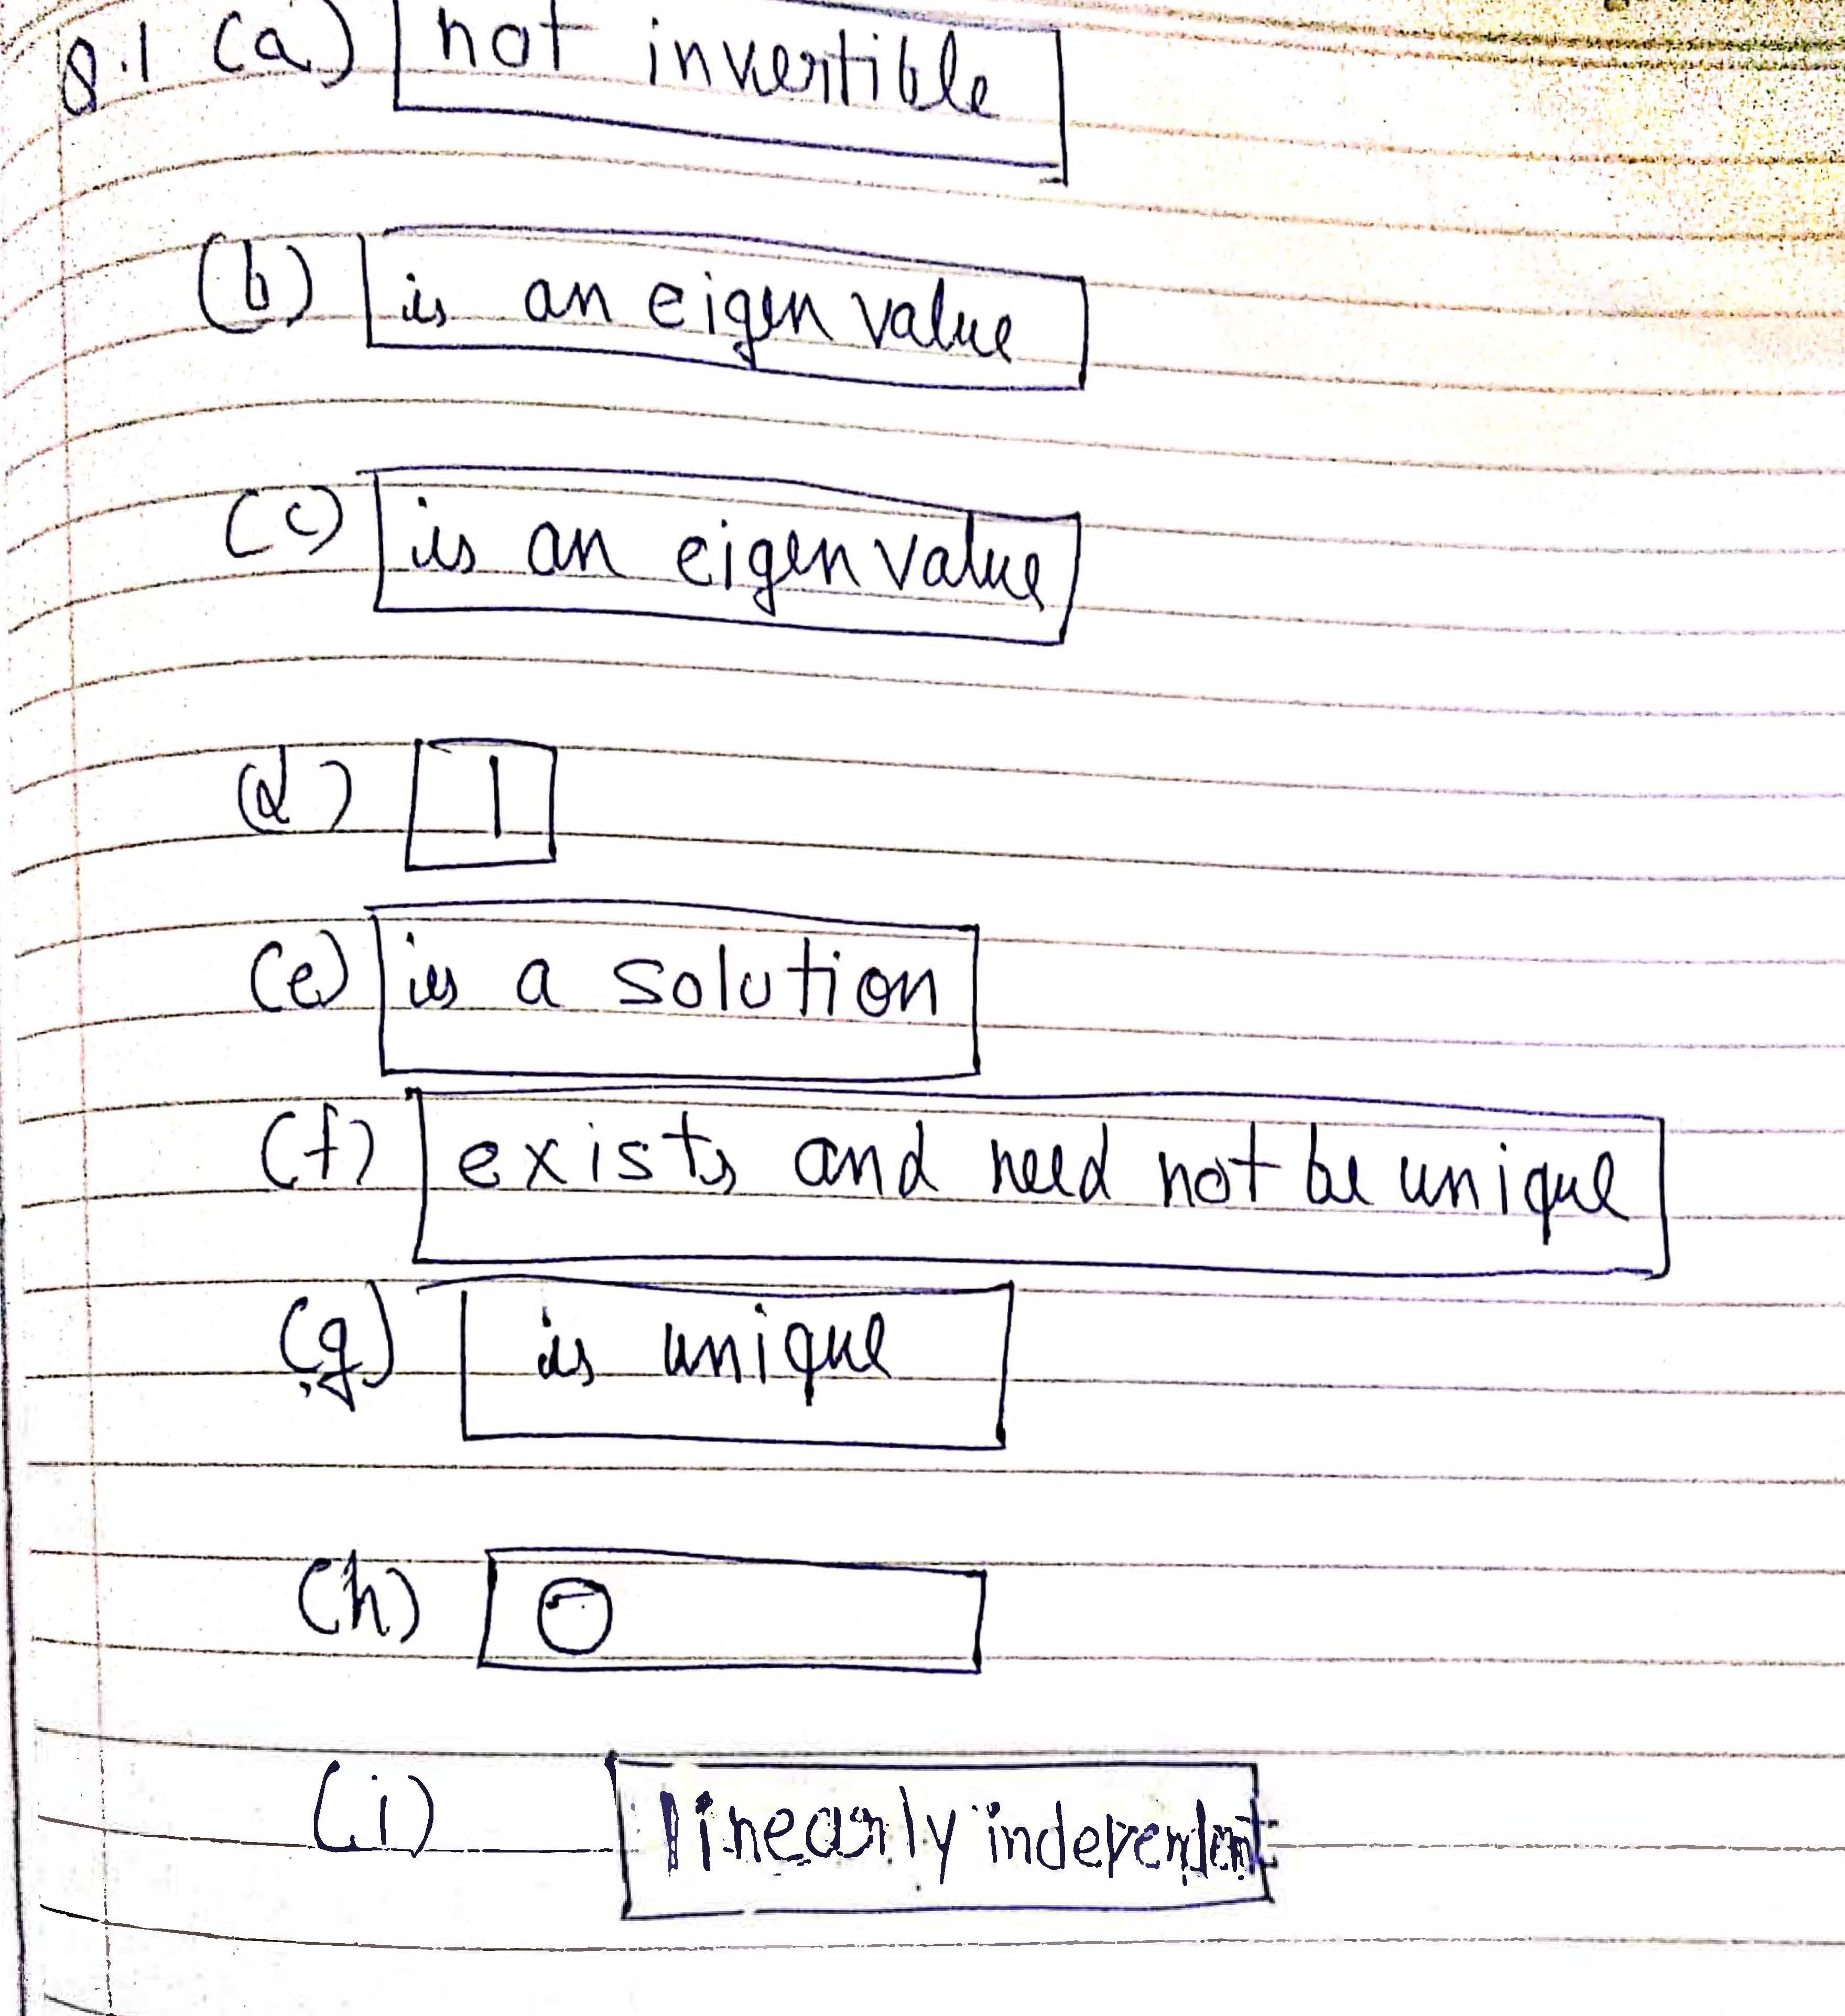 Q.1 (a) not invertible
(b) is an eigen value
(c) is an eigen value
(d) 1
(e) is a solution
(f) exists and need not be unique
(g) is unique
(h) 0
(i) linearly independent